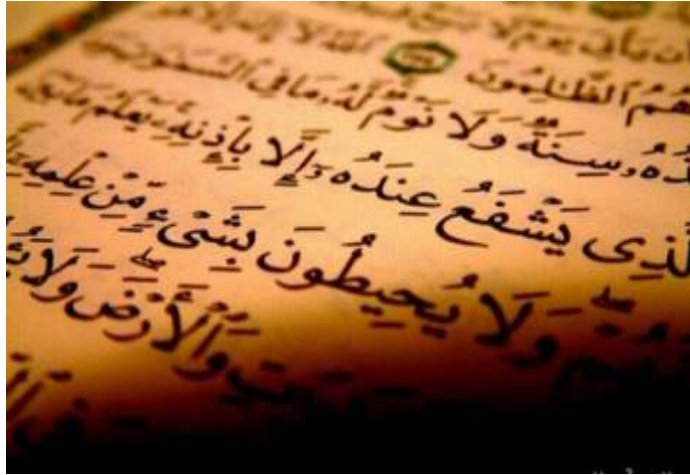 أن يأتي يوم لا بيع
هُمُ ٱلظَّٰلِمُونَ ٱللَّهُ لَا إِلَٰهَ إِلَّا
سِنَةٌ وَلَا نَوْمٌ لَّهُۥ مَا فِي ٱلسَّمَٰوَٰتِ
ٱلَّذِى يَشْفَعُ عِندَهُۥٓ إِلَّا بِإِذْنِهِۦ يَعْلَمُ مَا بَيْنَ
وَلَا يُحِيطُونَ بِشَىْءٍ مِّنْ عِلْمِهِۦٓ
وَٱلْأَرْضَ وَلَا